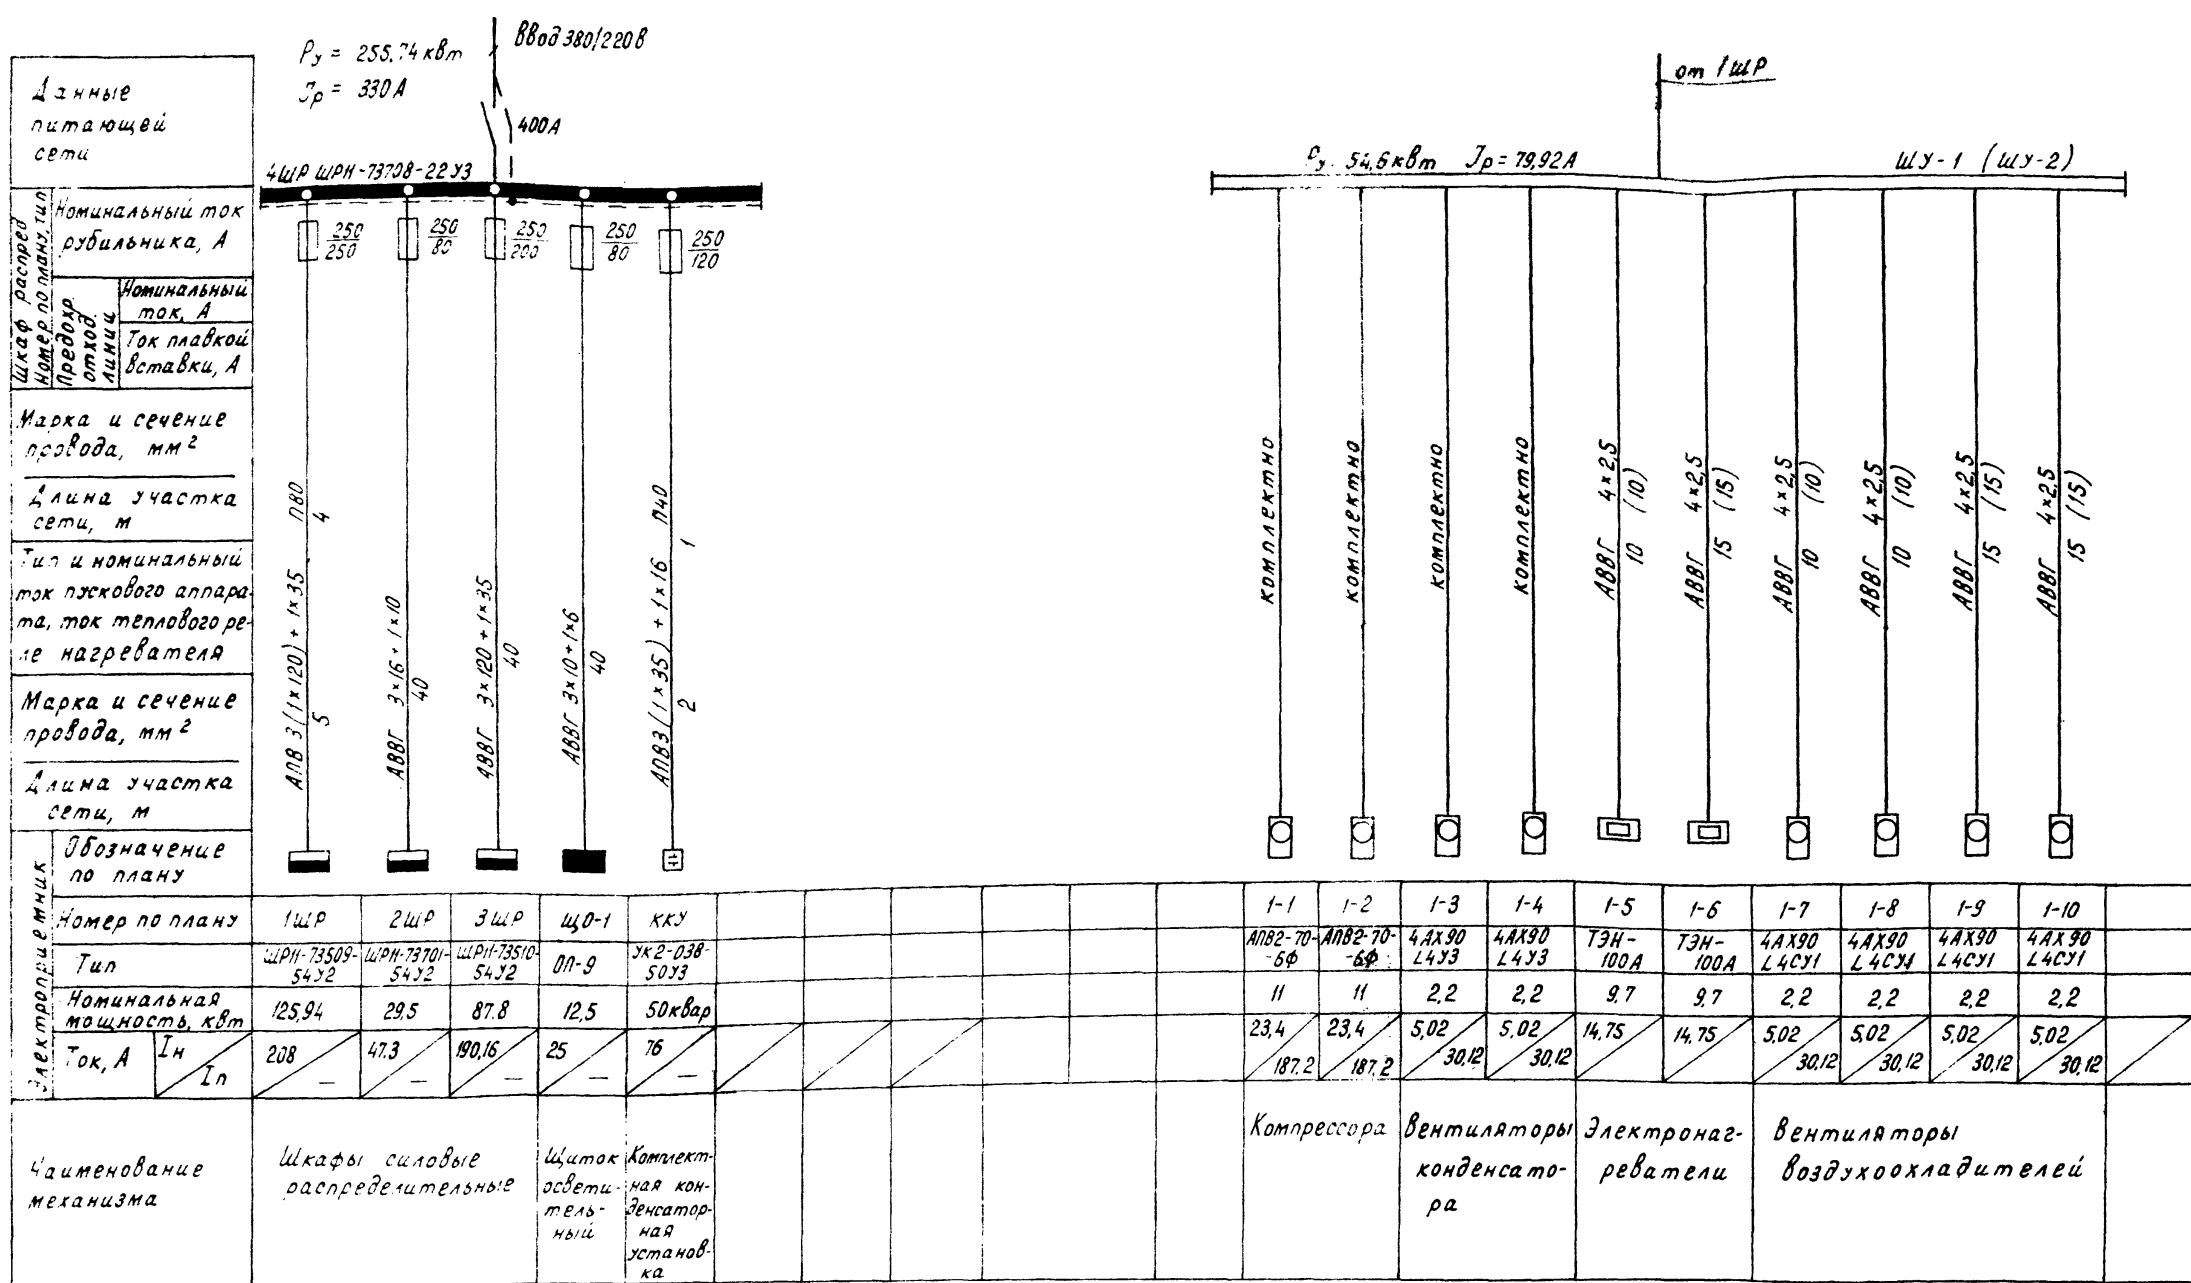 Ру = 255,74 квт
Јр = 330 А
Ввод 380/220 В
400А
4ШР ШРН-73708-22У3
от 1ШР
Ру. 54,6 квт Јр = 79,92 А
ШУ-1 (ШУ-2)
Данные
питающей
сети
Шкаф распред
Номер по плану, тип
Номинальный ток
рубильника, А
Предохр.
отход.
линии
Номинальный
ток, А
Ток плавкой
вставки, А
250
250
250
80
250
200
250
80
250
120
Марка и сечение
провода, мм²
Длина участка
сети, м
Тип и номинальный
ток пускового аппара-
та, ток теплового ре-
ле нагревателя
Марка и сечение
провода, мм²
Длина участка
сети, м
АПВ 3(1×120) + 1×35 П80
5 4
АВВГ 3×16 + 1×10
40
АВВГ 3×120 + 1×35
40
АВВГ 3×10 + 1×6
40
АПВ3(1×35) + 1×16 П40
2 1
комплектно
комплектно
комплектно
комплектно
АВВГ 4×2,5
10 (10)
АВВГ 4×2,5
15 (15)
АВВГ 4×2,5
10 (10)
АВВГ 4×2,5
10 (10)
АВВГ 4×2,5
15 (15)
АВВГ 4×2,5
15 (15)
Электроприемник
Обозначение
по плану
Номер по плану 1ШР 2ШР 3ШР ЩО-1 ККУ 1-1 1-2 1-3 1-4 1-5 1-6 1-7 1-8 1-9 1-10
Тип
ШРН-73509- ШРН-73701- ШРН-73510- ОП-9 УК2-038- АПВ2-70- АПВ2-70- 4АХ90 4АХ90 ТЭН- ТЭН- 4АХ90 4АХ90 4АХ90 4АХ90
54У2 54У2 54У2 50У3 -6Ф -6Ф L4У3 L4У3 100А 100А L4СУ1 L4СУ1 L4СУ1 L4СУ1
Номинальная
мощность, квт
125,94 29,5 87.8 12,5 50квар 11 11 2,2 2,2 9.7 9.7 2,2 2,2 2,2 2,2
Ток, А Iн
Iп
208 47.3 190,16 25 76 23,4 23,4 5,02 5,02 14,75 14,75 5,02 5,02 5,02 5,02
— — — — — 187.2 187.2 30,12 30,12 30,12 30,12 30,12 30,12
Наименование
механизма
Шкафы силовые
распределительные
Щиток
освети-
тель-
ный
Комплект-
ная кон-
денсатор-
ная
установ-
ка
Компрессора
Вентиляторы
конденсато-
ра
Электронаг-
реватели
Вентиляторы
воздухоохладителей